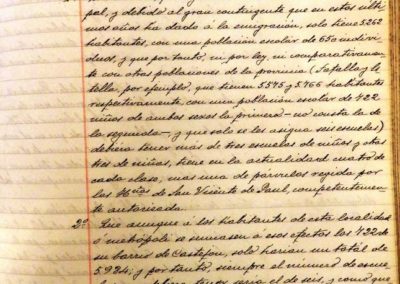 pal, y debido al gran contingente que en estos últi-
mos años ha dado á la emigración, solo tiene 5.262
habitantes, con una población escolar de 650 indivi-
duos, y que por tanto, ni por ley, ni comparativamen-
te con otras poblaciones de la provincia (Tafalla y Es-
tella, por ejemplo, que tienen 5.575 y 5.766 habitantes
respectivamente con una población escolar de 422
niños de ambos sexos la primera - no consta la de
la segunda -, y que solo se les asigna seis escuelas)
debiera tener más de tres escuelas de niños y otras
tres de niñas, tiene en la actualidad cuatro de
cada clase, más una de párvulos regida por
las H.nas de San Vicente de Paul, competentemen-
te autorizada.
2º Que aunque á los habitantes de esta localidad
o metrópoli se sumasen á esos efectos los 722 de
su barrio de Castejon, solo harían un total de
5.984; y por tanto, siempre el número de escue-